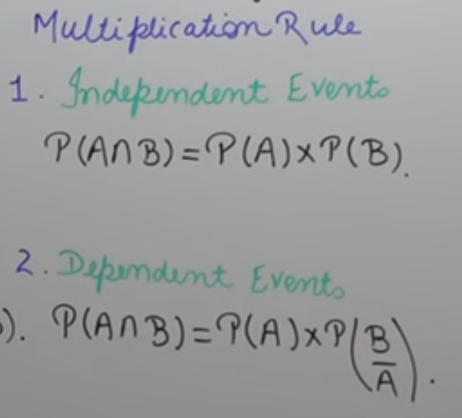 Multiplication Rule
1. Independent Events
P(A∩B)=P(A)×P(B).
2. Dependent Events
). P(A∩B)=P(A)×P(B/A).